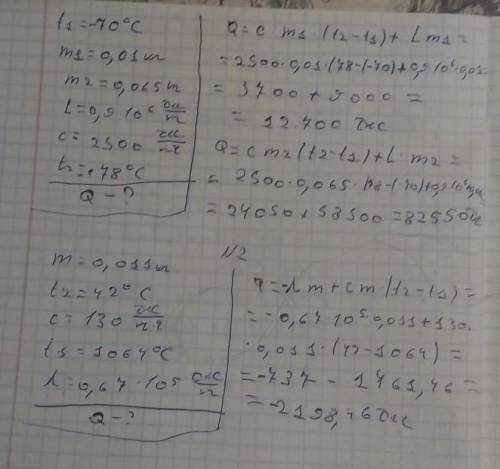 t₁=-70°C
m₁=0,01 кг
m₂=0,065 кг
L=0,9·10⁶ Дж/кг
c=2500 Дж/кг·°С
t₂=+78°C
Q-?
Q=c m₁ (t₂-t₁)+Lm₁=
=2500·0,01·(78-(-70)+0,9·10⁶·0,01=
=3700+9000=
=12.700 Дж
Q=cm₂(t₂-t₁)+L·m₂=
=2500·0,065·(78-(-70)+0,9·10⁶
=24050+58500=82550 Дж
N2
m=0,011 кг
t₂=42°C
c=130 Дж/кг·°С
t₁=1064°C
λ=0,67·10⁵ Дж/кг
Q-?
q=-λm+cm(t₂-t₁)=
=-0,67·10⁵·0,011+130·
·0,011·(42-1064)=
=-737-1461,46=
=-2198,46 Дж